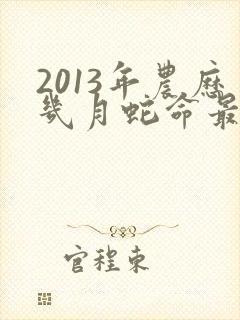 2013年農歷
幾月蛇命最
官程東